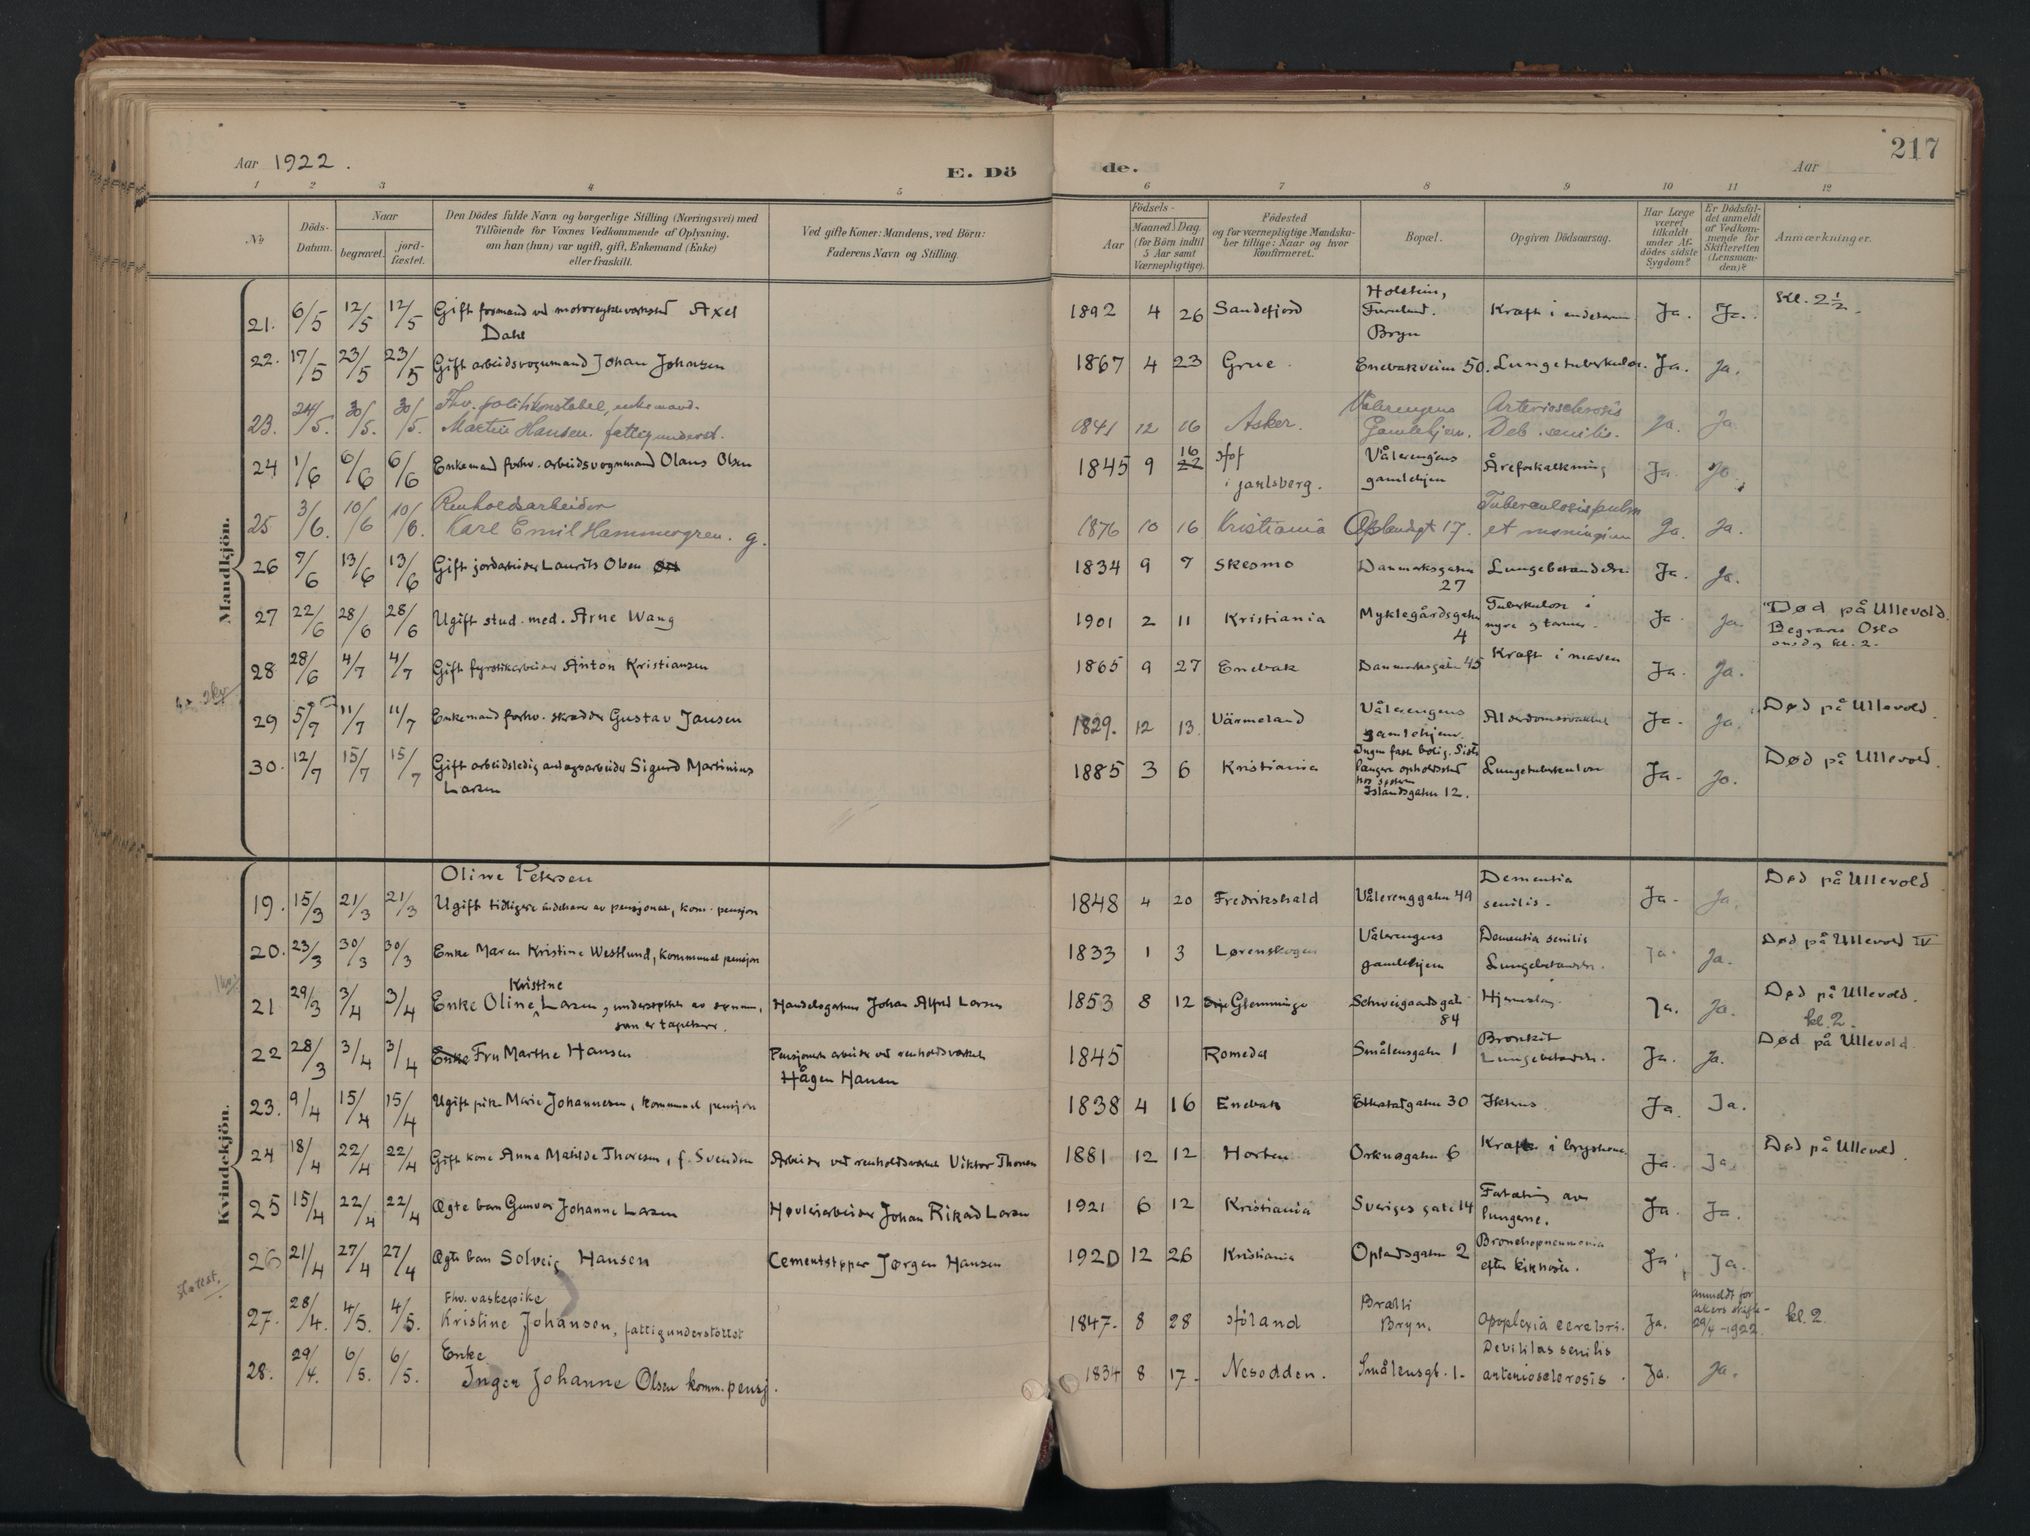 217
Aar 1922.
E. Döde.
Aar
1 2 3 4 5 6 7 8 9 10 11 12
№
Döds-Datum.
Naar
begravet.
jord-fæstet.
Den Dödes fulde Navn og borgerlige Stilling (Næringsvei) med
Tilföiende for Voxnes Vedkommende af Oplysning,
om han (hun) var ugift, gift, Enkemand (Enke)
eller fraskilt.
Ved gifte Koner: Mandens, ved Börn:
Faderens Navn og Stilling.
Födsels-
Aar
Maaned Dag
(for Börn indtil
5 Aar samt
Værnepligtige).
Födested
og for værnepligtige Mandska-
ber tillige: Naar og hvor
konfirmeret.
Bopæl.
Opgiven Dödsaarsag.
Har Læge
været
tilkaldt
under Af-
dödes sidste
Sygdom?
Er Dödsfal-
det anmeldt
af Vedkom-
mende for
Skifteretten
(Lensman-
den)?
Anmærkninger.
Mandkjön.
21. 6/5 12/5 12/5 Gift formand ved motorcykleverksted Axel
Dahl
1892 4 26 Sandefjord Holstein,
Furulund.
Bryn
Kræft i endetarm Ja. Ja. Kl. 2 1/2.
22. 17/5 23/5 23/5 Gift arbeidsvognmand Johan Johnsen 1867 4 23 Grue. Enebakveien 50. Lungetuberkulose. Ja. Ja.
23. 24/5. 30/5. 30/5. Fhv. politikonstabel, enkemand.
Martin Hansen. fattigunderst.
1841 12 16 Asker. Vålerengens
Gamlehjem.
Arteriosclerosis
Deb. senilis. Ja. Ja.
24 1/6 6/6 6/6 Enkemand forhv. arbeidsvognmand Olaus Olsen 1845 9 16 22
i Jarlsberg.
Vålerengens
gamlehjem
Åreforkalkning Ja. Ja.
25 3/6. 10/6 10/6. Renholdsarbeider
Karl Emil Hammergren. g.
1876 10 16 Kristiania Oplandgt 17. Tuberculosis pulm
et meningium Ja. Ja.
26 7/6 13/6 13/6 Gift jordarbeider Laurits Olsen 1834 9 7 Skesmo Danmarksgaten
27
Lungebetændelse Ja. Ja.
27 22/6 28/6 28/6 Ugift stud. med. Arne Wang 1901 2 11 Kristiania Myklegårdsgaten
4
Tuberkulose i
nyre og tarmer. Ja. Ja. Død på Ullevold.
Begraves Oslo
onsdag kl. 2.
28 28/6 4/7 4/7 Gift fyrstikarbeider Anton Kristiansen 1865 9 27 Enebak Danmarksgaten 45 Kræft i maven Ja. Ja.
29 5/7 11/7 11/7 Enkemand forhv. skrædder Gustav Jansen 1829. 12 13. Värmeland Vålerengens
gamlehjem.
Alderdomssvakhet Ja. Ja. Død på Ullevold.
30. 12/7 15/7 15/7 Gift arbeidsledig anlægsarbeider Sigurd Martinius
Larsen
1885 3 6 Kristiania Ingen fast bolig. Siste
længere opholdssted
hos søsteren
Islandsgaten 12.
Lungetuberkulose Ja. Ja. Død på Ullevold.
Kvindekjön.
19. 15/3 21/3 21/3 Oline Petersen
Ugift tidligere indehaver av pensjonat, kom. pensjon
1848 4 20 Fredrikshald Vålerenggaten 49 Dementia
senilis. Ja. Ja. Død på Ullevold
20. 23/3 30/3 30/3 Enke Maren Kristine Westlund, kommunal pensjon 1833 1 3 Lørenskogen Vålerengens
gamlehjem
Dementia senilis
Lungebetændelse. Ja. Ja. Død på Ullevold IV
21 29/3 3/4 3/4 Kristine
Enke Oline Larsen, understøttet av sønnen,
som er tapetserer.
Handelsgartner Johan Alfred Larsen 1853 8 12 Glemminge Schweigaardsgate
84
Hjerneslag. Ja. Ja. Død på Ullevold.
kl. 2.
22 28/3 3/4 3/4 Enke Fru Marthe Hansen Pensjonert arbeider ved renholdsverket
Hågen Hansen
1845 Romedal Smålensgaten 1 Bronkit
Lungebetændelse. Ja. Ja. Død på Ullevold.
23. 9/4 15/4 15/4 Ugift pike Marie Johannesen, kommunal pensjon 1838 4 16 Enebak Etterstadgaten 30 Ikterus. Ja. Ja.
24 18/4 22/4 22/4 Gift kone Anna Matilde Thoresen, f. Svendsen Arbeider ved renholdsverket Viktor Thoresen 1881 12 12 Horten Orknøgaten 6 Kræft i brystene Ja. Ja. Død på Ullevold.
25 15/4 22/4 22/4 Ægte barn Gunvor Johanne Larsen Høvleriarbeider Johan Rikard Larsen 1921 6 12 Kristiania Sveriges gate 14 Fortætning av
lungerne. Ja. Ja.
26 21/4 27/4 27/4 Ægte barn Solveig Hansen Cementstøper Jørgen Hansen 1920 12 26 Kristiania Oplandsgaten 2 Bronchopneumonia
efter kikhoste. Ja Ja.
27. 28/4. 4/5. 4/5. Fhv. vaskepike
Kristine Johansen, fattigunderstøttet
1847. 8 28 Bryn. Apoplexia cerebri. Ja. anmeldt for
akers skifte-
29/4-1922. kl. 2.
28. 29/4. 6/5. 6/5. Enke
Inger Johanne Olsen komm. pensj.
1834 8 17. Nesodden. Smålensgt. 1. Debilitas senilis
arteriosclerosis. Ja. Ja.